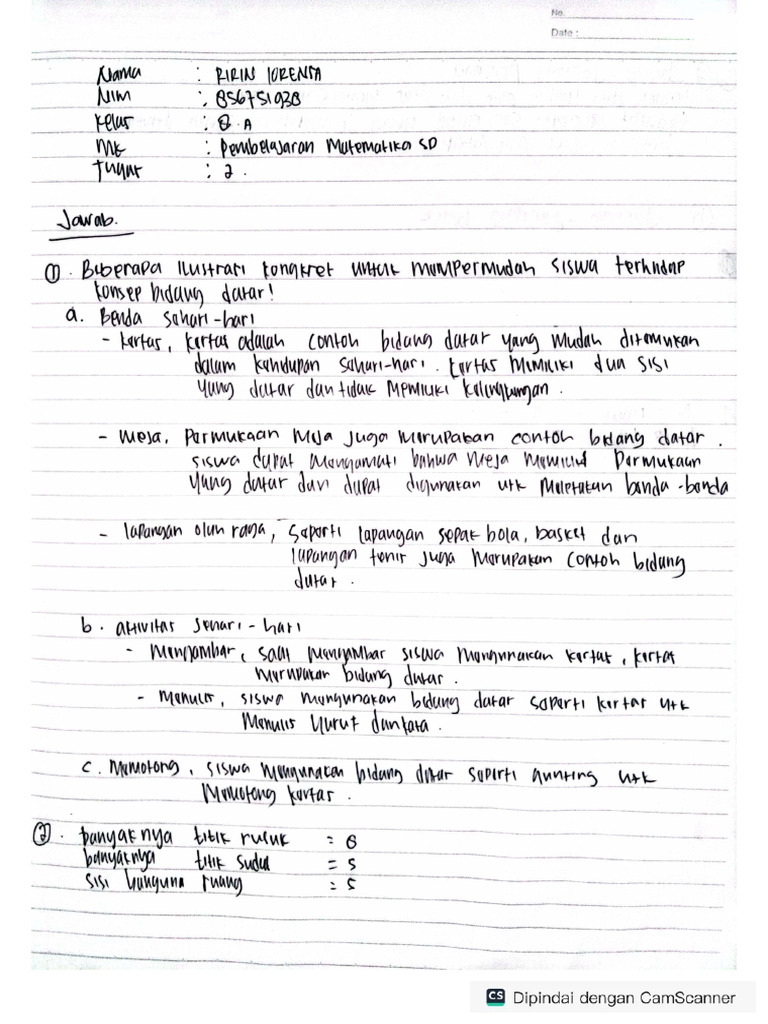 No.
Date :
Nama : RIRIN LORENSA
NIM : 856751938
Kelas : 8.A
MK : Pembelajaran Matematika SD
Tugas : 2.
Jawab.
① . Beberapa ilustrasi kongkret untuk mempermudah siswa terhadap
konsep bidang datar!
a. Benda sehari-hari
- kertas, kertas adalah contoh bidang datar yang mudah ditemukan
dalam kehidupan sehari-hari. kertas memiliki dua sisi
yang datar dan tidak memiliki kelengkungan.
- meja, Permukaan meja juga merupakan contoh bidang datar.
siswa dapat mengamati bahwa meja memiliki permukaan
yang datar dan dapat digunakan utk meletakan benda-benda
- lapangan olah raga, seperti lapangan sepak bola, basket dan
lapangan tenis juga merupakan contoh bidang
datar.
b. aktivitas sehari-hari
- menggambar, saat menggambar siswa menggunakan kertas, kertas
merupakan bidang datar.
- Menulis, siswa menggunakan bidang datar seperti kertas utk
Menulis huruf dan kata.
c. Memotong, siswa menggunakan bidang datar seperti gunting utk
Memotong kertas.
② . banyaknya titik rusuk = 8
banyaknya titik sudut = 5
sisi bangunan ruang = 5
CS Dipindai dengan CamScanner